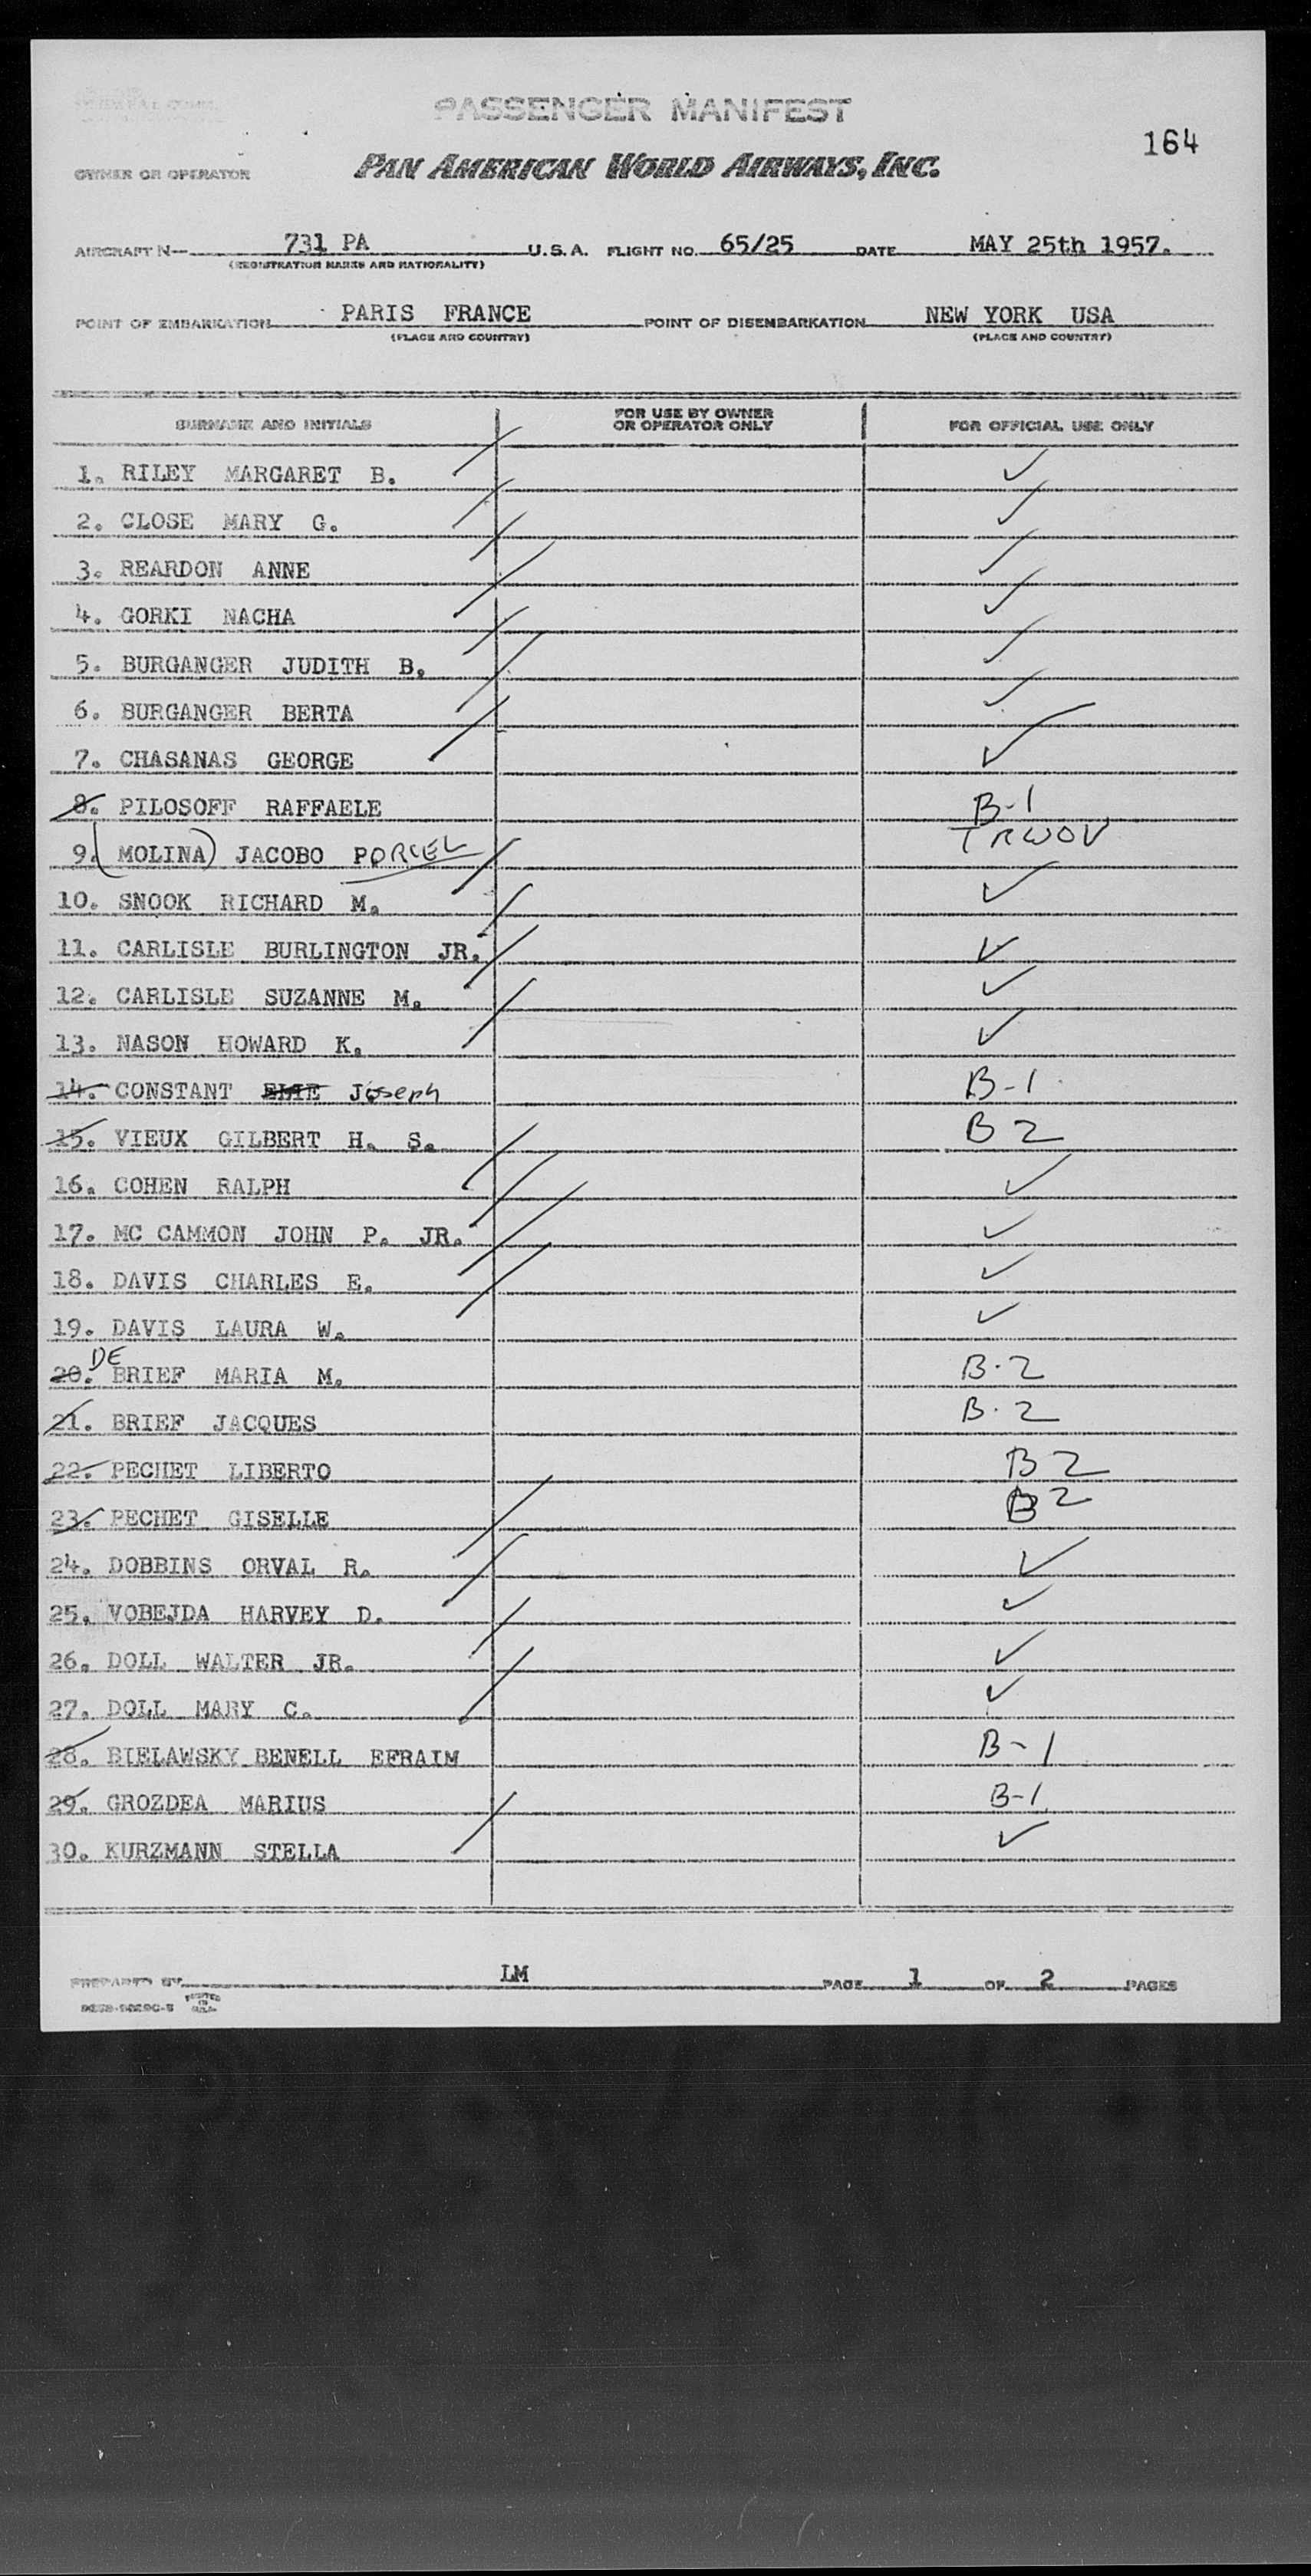 PASSENGER MANIFEST
164
OWNER OR OPERATOR PAN AMERICAN WORLD AIRWAYS, INC.
AIRCRAFT N— 731 PA U.S.A. FLIGHT NO. 65/25 DATE MAY 25th 1957.
(REGISTRATION MARKS AND NATIONALITY)
POINT OF EMBARKATION PARIS FRANCE POINT OF DISEMBARKATION NEW YORK USA
(PLACE AND COUNTRY) (PLACE AND COUNTRY)
SURNAME AND INITIALS FOR USE BY OWNER OR OPERATOR ONLY FOR OFFICIAL USE ONLY
1. RILEY MARGARET B. ✓
2. CLOSE MARY G. ✓
3. REARDON ANNE ✓
4. GORKI NACHA ✓
5. BURGANGER JUDITH B. ✓
6. BURGANGER BERTA ✓
7. CHASANAS GEORGE ✓
8. PILOSOFF RAFFAELE B-1
9. (MOLINA) JACOBO PORCEL TRWOV
10. SNOOK RICHARD M. ✓
11. CARLISLE BURLINGTON JR. ✓
12. CARLISLE SUZANNE M. ✓
13. NASON HOWARD K. ✓
14. CONSTANT ELIE Joseph B-1
15. VIEUX GILBERT H. S. B 2
16. COHEN RALPH ✓
17. MC CAMMON JOHN P. JR. ✓
18. DAVIS CHARLES E. ✓
19. DAVIS LAURA W. ✓
20. DE BRIEF MARIA M. B-2
21. BRIEF JACQUES B-2
22. PECHET LIBERTO B 2
23. PECHET GISELLE B 2
24. DOBBINS ORVAL R. ✓
25. VOBEJDA HARVEY D. ✓
26. DOLL WALTER JR. ✓
27. DOLL MARY C. ✓
28. BIELAWSKY BENELL EFRAIM B-1
29. GROZDEA MARIUS B-1
30. KURZMANN STELLA ✓
PREPARED BY LM PAGE 1 OF 2 PAGES
PRINTED IN U.S.A.